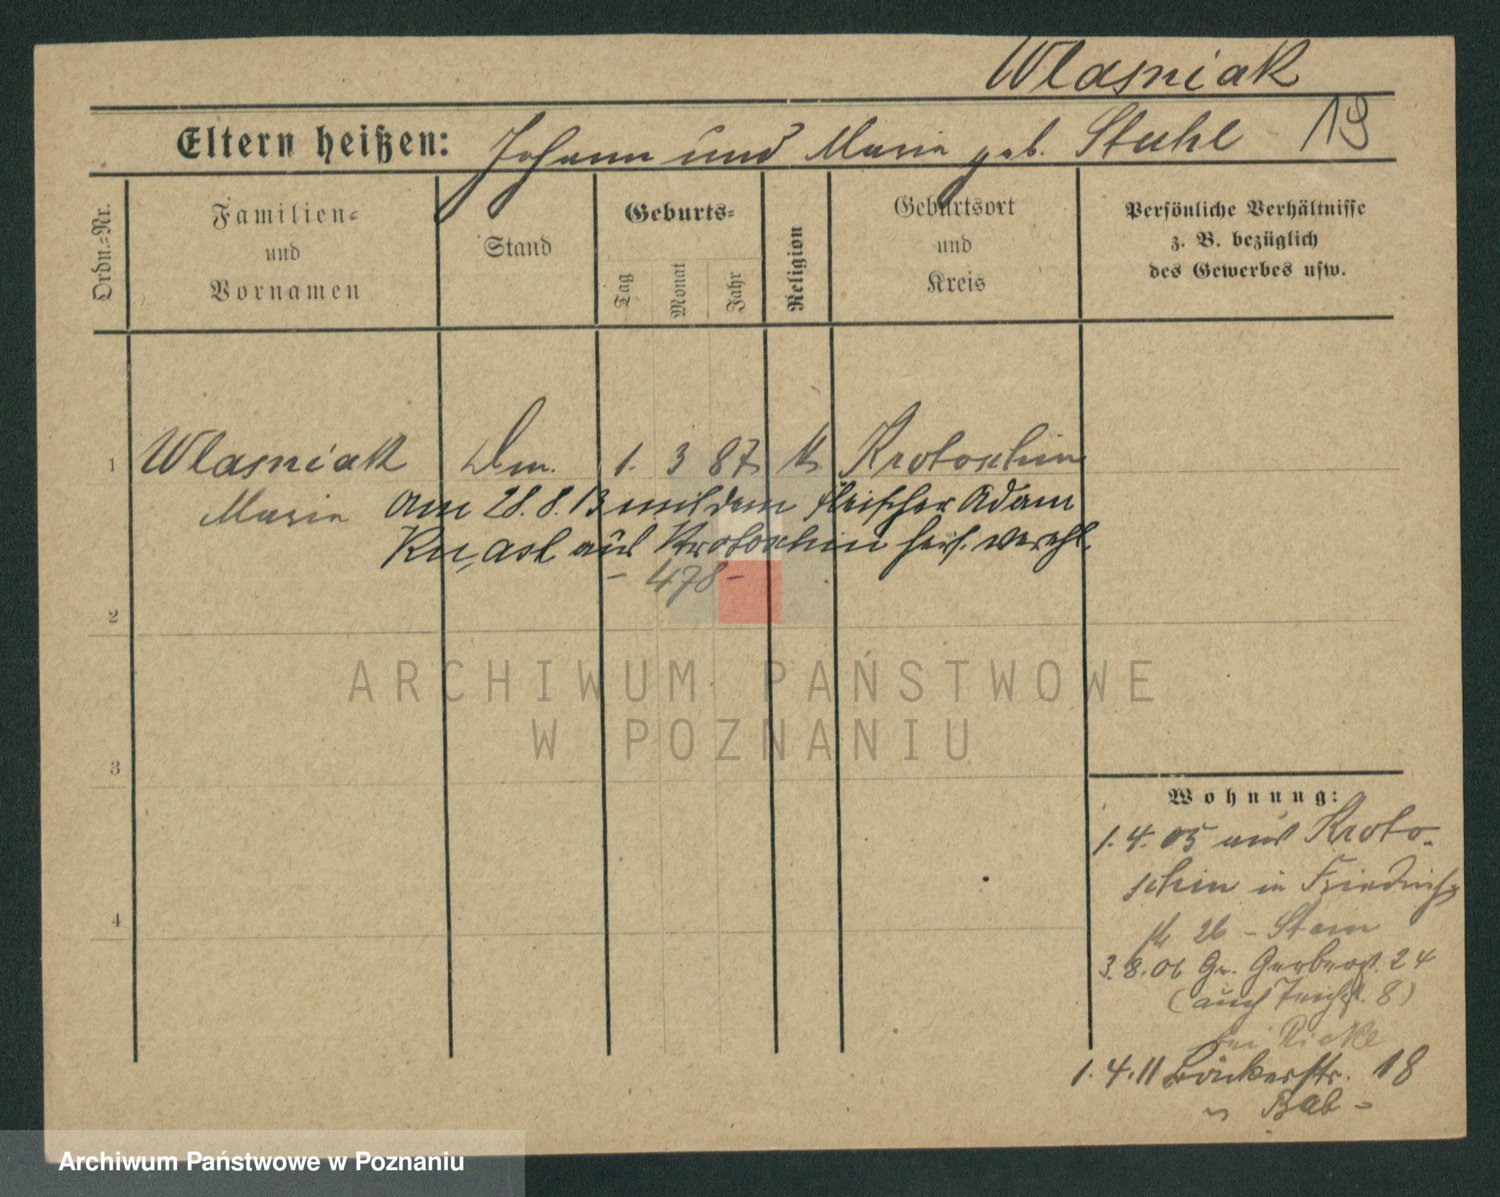 Wlasniak
Eltern heißen: Johann und Maria geb. Stuhl 19
Ordn.-Nr.
Familien-
und
Vornamen
Stand
Geburts-
Tag
Monat
Jahr
Religion
Geburtsort
und
Kreis
Persönliche Verhältnisse
z. B. bezüglich
des Gewerbes usw.
1 Wlasniak 1. 3 87 k Krotoschin
Maria am 28.8.13 mit dem Fleischer Adam
aus Krotoschin verehl.
- 478 -
2
3
4
Wohnung:
1.4.05 aus Kroto-
schin in Friedrich
26 - Stam
3.8.06 Gr. Gerberst. 24
(auch Teichst. 8)
bei
1.4.11 Bäckerstr. 18
Bab -
ARCHIWUM PAŃSTWOWE
W POZNANIU
Archiwum Państwowe w Poznaniu